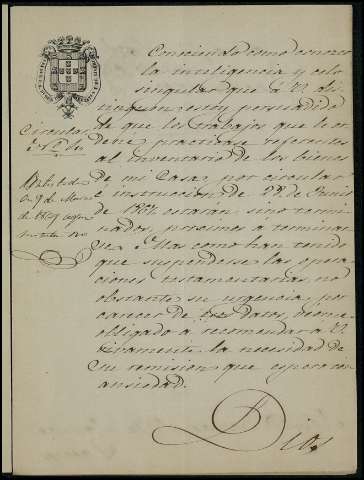 Conociendo como conozco
la inteligencia y celo
singular que á VV. dis-
tinguen estoy persuadido
de que los trabajos que le or-
dene practicase referentes
al inventario de los bienes
de mi Casa, por circular
é instruccion de 22 de
de 1867 estarán sino termi-
nados, proximos a terminar-
se. Mas como han tenido
que suspenderse las opera-
ciones testamentarias, no
obstante su urgencia por
carecer de tres datos, me veo
obligado a recomendar á VV.
vivamente la necesidad de
su remision que espero con
ansiedad.
Dios
Circular
de 9 de
de 1869